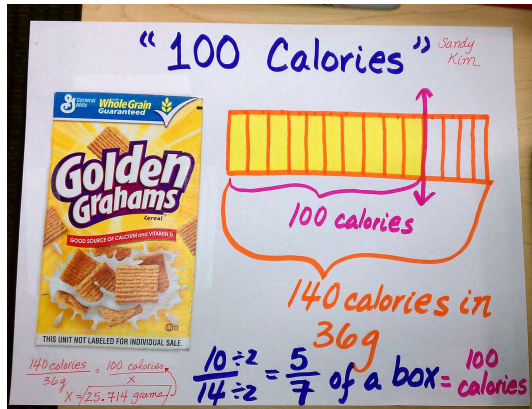 “100 Calories”
Sandy
Kim
General
Mills
Whole Grain
Guaranteed
Golden
Grahams
Cereal
GOOD SOURCE OF CALCIUM and VITAMIN D
THIS UNIT NOT LABELED FOR INDIVIDUAL SALE.
100 calories
140 calories in
36g
140 calories / 36g = 100 calories / x
x = 25.714 grams
10 ÷2 / 14 ÷2 = 5 / 7 of a box = 100 calories